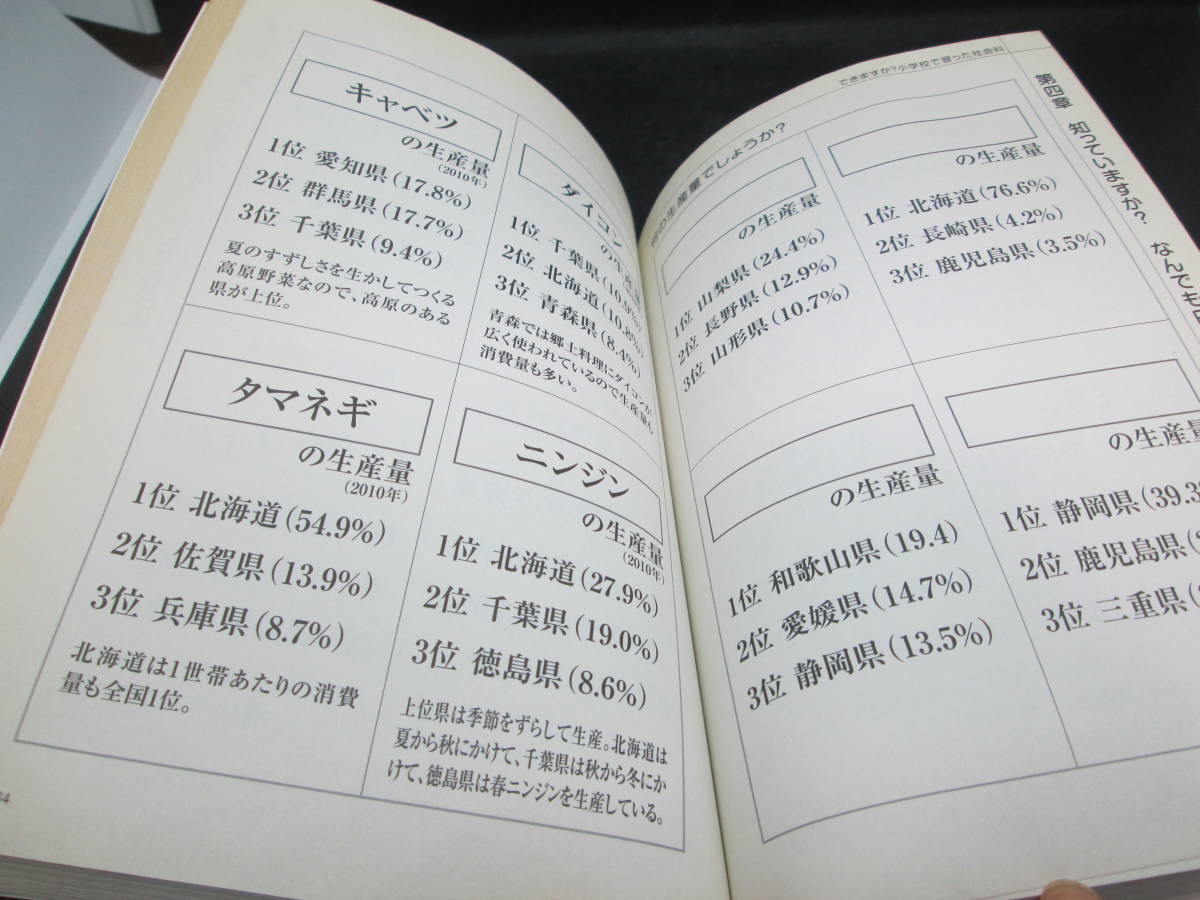 キャベツ
の生産量
(2010年)
1位 愛知県(17.8%)
2位 群馬県(17.7%)
3位 千葉県(9.4%)
夏のすずしさを生かしてつくる
高原野菜なので、高原のある
県が上位。
ダイコン
の生産量
1位 千葉県(10.9%)
2位 北海道(10.8%)
3位 青森県(8.4%)
青森では郷土料理にダイコンが
広く使われているので生産量も
消費量も多い。
タマネギ
の生産量
(2010年)
1位 北海道(54.9%)
2位 佐賀県(13.9%)
3位 兵庫県(8.7%)
北海道は1世帯あたりの消費
量も全国1位。
ニンジン
の生産量
(2010年)
1位 北海道(27.9%)
2位 千葉県(19.0%)
3位 徳島県(8.6%)
上位県は季節をずらして生産。北海道は
夏から秋にかけて、千葉県は秋から冬にか
けて、徳島県は春ニンジンを生産している。
できますか?小学校で習った社会科
第四章 知っていますか? なんでも
の生産量でしょうか?
の生産量
1位 山梨県(24.4%)
2位 長野県(12.9%)
3位 山形県(10.7%)
の生産量
1位 北海道(76.6%)
2位 長崎県(4.2%)
3位 鹿児島県(3.5%)
の生産量
1位 和歌山県(19.4)
2位 愛媛県(14.7%)
3位 静岡県(13.5%)
の生産量
1位 静岡県(39.3
2位 鹿児島県(
3位 三重県(